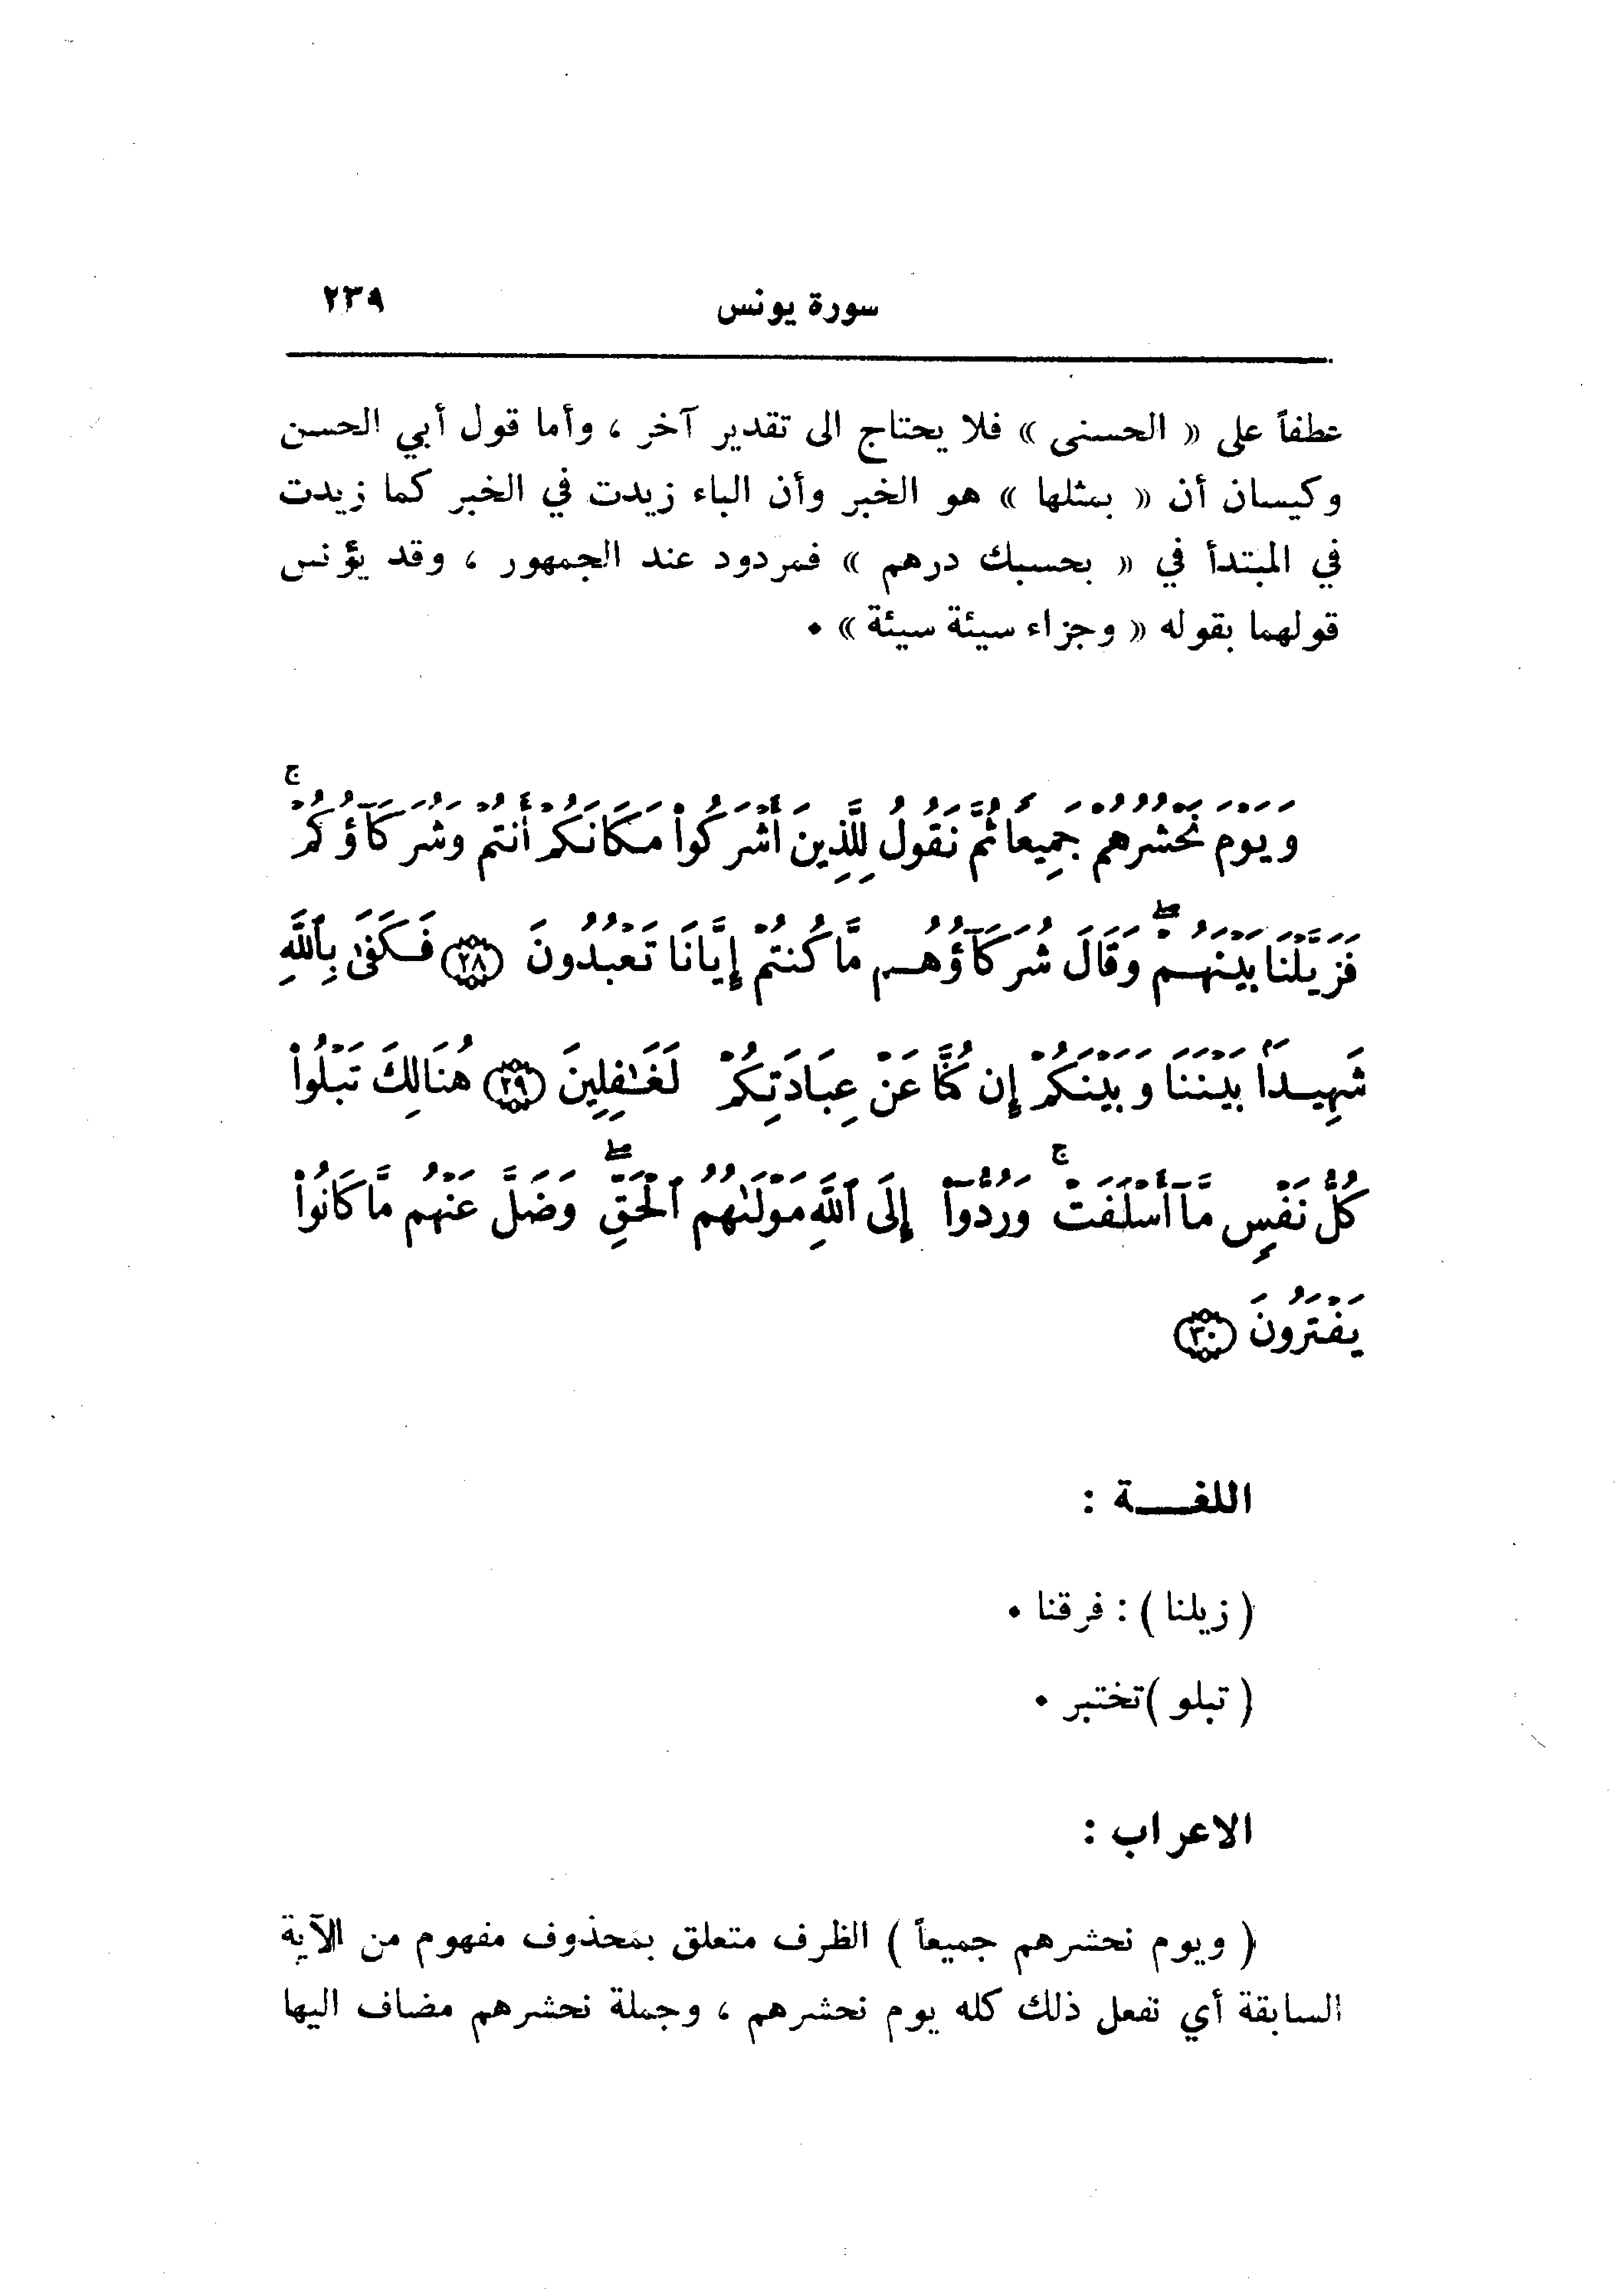 سورة يونس ٢٣٩
عطفاً على « الحسنى » فلا يحتاج الى تقدير آخر ، وأما قول أبي الحسن
وكيسان أن « بمثلها » هو الخبر وأن الباء زيدت في الخبر كما زيدت
في المبتدأ في « بحسبك درهم » فمردود عند الجمهور ، وقد يؤنس
قولهما بقوله « وجزاء سيئة سيئة » ٠
وَيَوْمَ نَحْشُرُهُمْ جَمِيعًا ثُمَّ نَقُولُ لِلَّذِينَ أَشْرَكُواْ مَكَانَكُمْ أَنتُمْ وَشُرَكَآؤُكُمْ ۚ
فَزَيَّلْنَا بَيْنَهُمْ ۖ وَقَالَ شُرَكَآؤُهُم مَّا كُنتُمْ إِيَّانَا تَعْبُدُونَ ﴿٢٨﴾ فَكَفَىٰ بِٱللَّهِ
شَهِيدًۢا بَيْنَنَا وَبَيْنَكُمْ إِن كُنَّا عَنْ عِبَادَتِكُمْ لَغَٰفِلِينَ ﴿٢٩﴾ هُنَالِكَ تَبْلُواْ
كُلُّ نَفْسٍ مَّآ أَسْلَفَتْ ۚ وَرُدُّوٓاْ إِلَى ٱللَّهِ مَوْلَىٰهُمُ ٱلْحَقِّ ۖ وَضَلَّ عَنْهُم مَّا كَانُواْ
يَفْتَرُونَ ﴿٣٠﴾
اللغـــة :
( زيلنا ) : فرقنا ٠
( تبلو )تختبر ٠
الاعراب :
( ويوم نحشرهم جميعاً ) الظرف متعلق بمحذوف مفهوم من الآية
السابقة أي تفعل ذلك كله يوم نحشرهم ، وجملة نحشرهم مضاف اليها